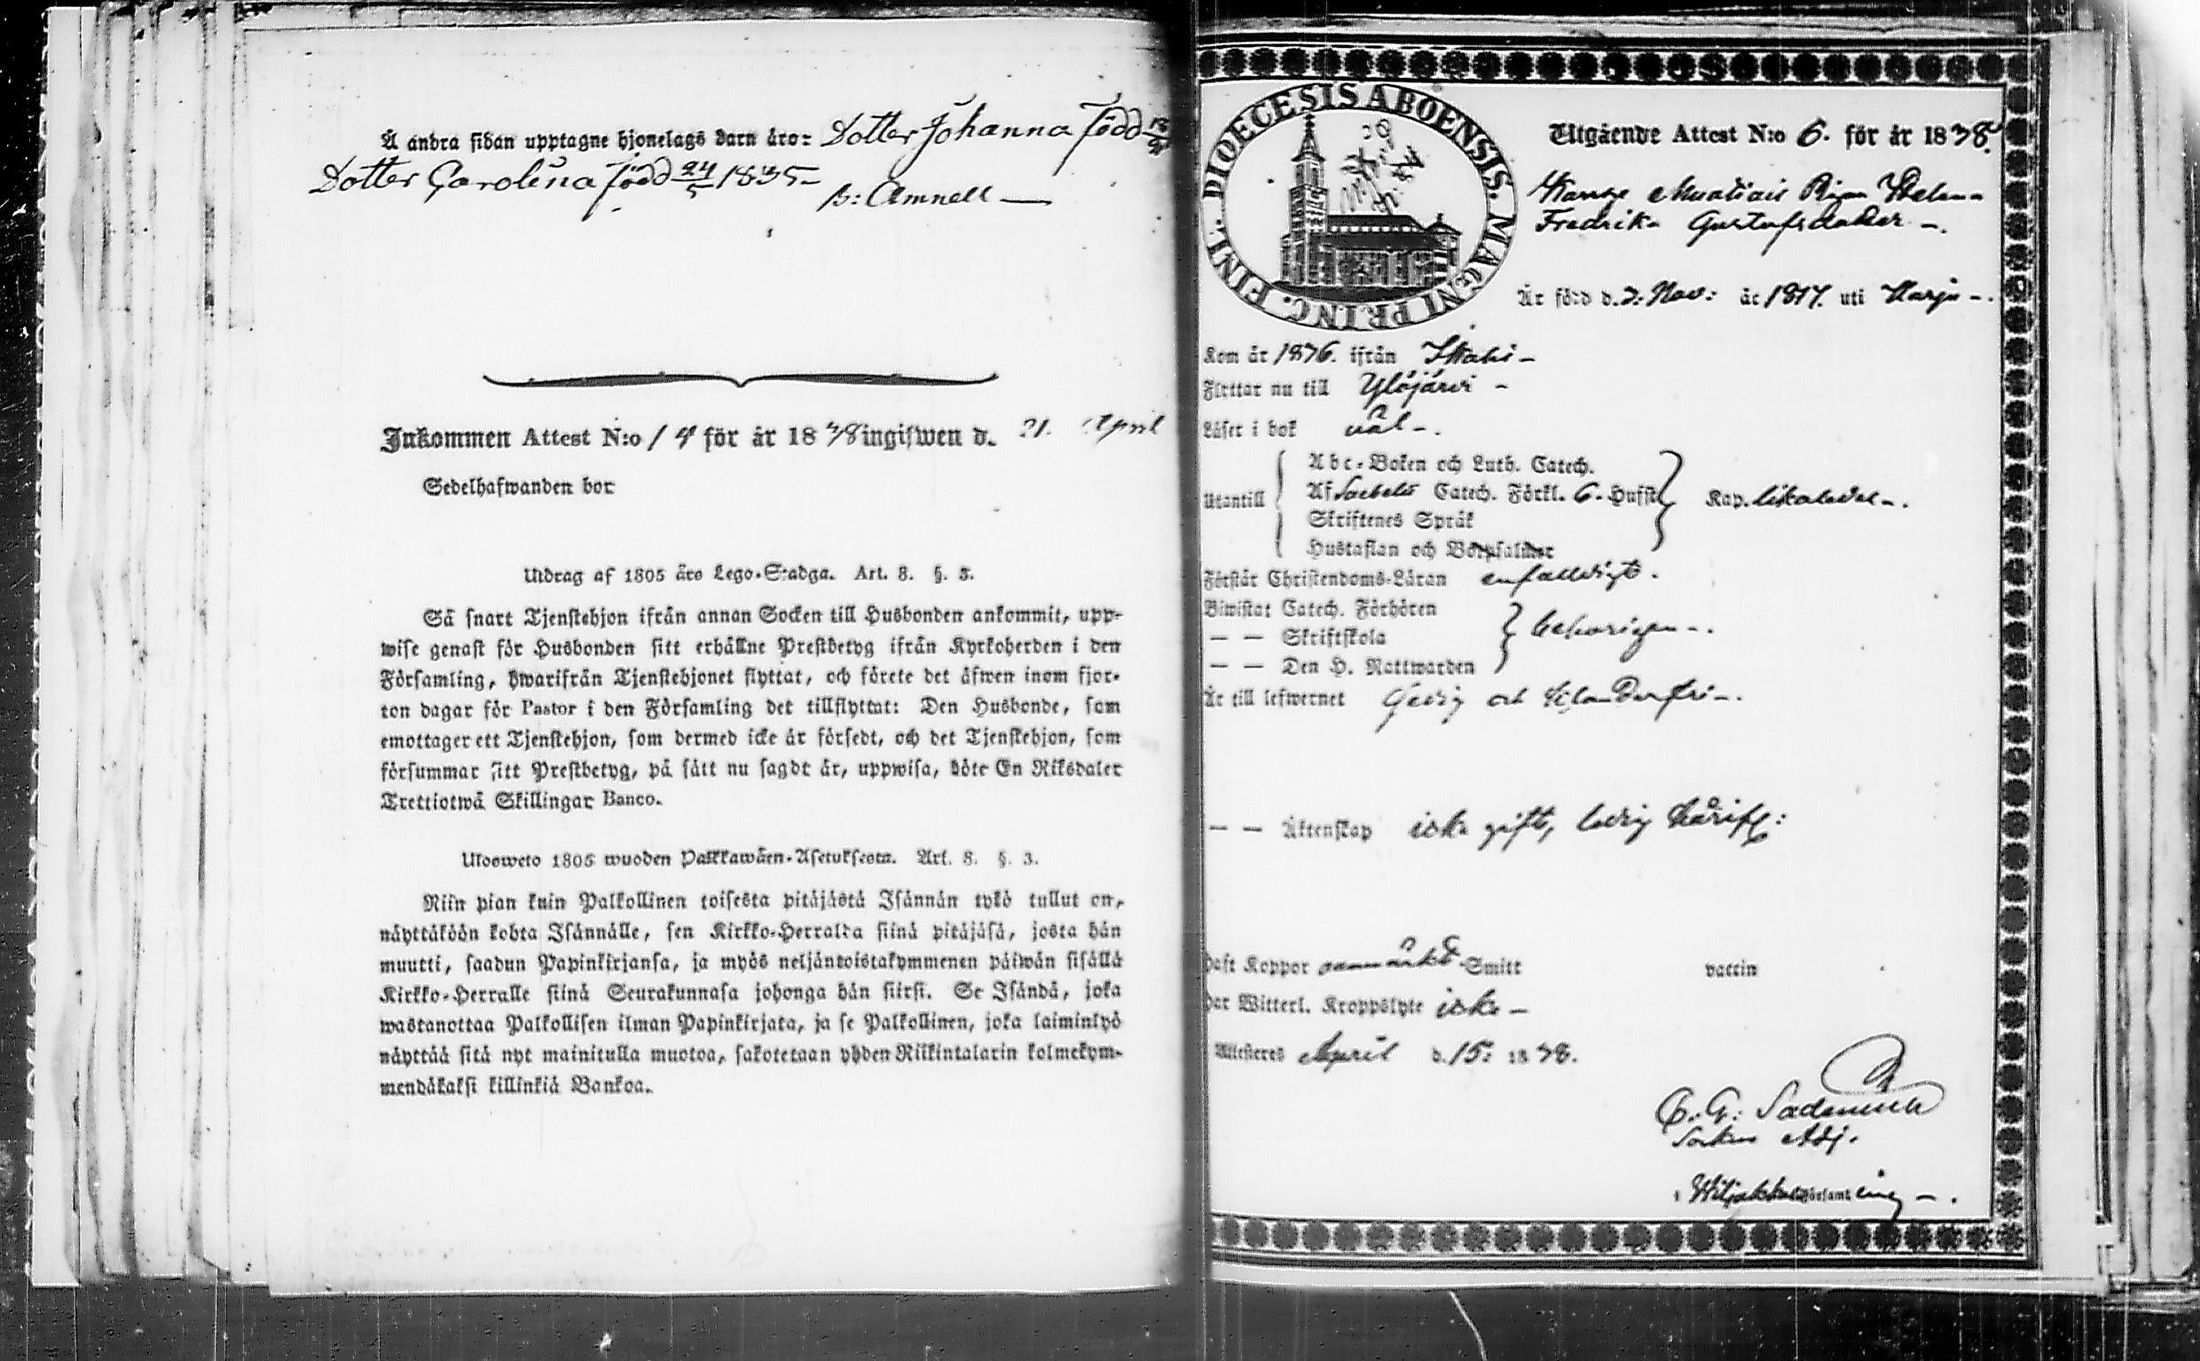 Å andra sidan upptagne hjonelags barn äro: Dotter Johanna född
Dotter Carolina född 24/5 1835
B: Amnell
Inkommen Attest N:o 14 för år 1838 ingifwen d. 21. April
Sedelhafwanden bor
Utdrag af 1805 års Lego-Stadga. Art. 8. §. 3.
Så snart Tjenstehjon ifrån annan Socken till Husbonden ankommit, upp-
wise genast för Husbonden sitt erhållne Prestbetyg ifrån Kyrkoherden i den
Församling, hwarifrån Tjenstehjonet flyttat, och förete det äfwen inom fjor-
ton dagar för Pastor i den Församling det tillflyttat: Den Husbonde, som
emottager ett Tjenstehjon, som dermed icke är försedt, och det Tjenstehjon, som
försummar sitt Prestbetyg, på sätt nu sagdt är, uppwisa, böte En Riksdaler
Trettiotwå Skillingar Banco.
Ulosweto 1805 wuoden Palkkawäen-Asetuksesta. Art. 8. §. 3.
Niin pian kuin Palkollinen toisesta pitäjästä Isännän tykö tullut on,
näyttäköön kohta Isännälle, sen Kirkko-Herralta siinä pitäjäsä, josta hän
muutti, saadun Papinkirjansa, ja myös neljäntoistakymmenen päiwän sisällä
Kirkko-Herralle siinä Seurakunnasa johonga hän siirsi. Se Isändä, joka
wastanottaa Palkollisen ilman Papinkirjata, ja se Palkollinen, joka laiminlyö
näyttää sitä nyt mainitulla muotoa, sakotetaan yhden Riikintalarin kolmekym-
mendäkaksi killinkiä Bankoa.
DIOECESIS ABOENSIS. MAGNI PRINC. FINL.
Utgående Attest N:o 6. för år 1838.
Fredrika Gustafsdotter
Är född d. 2: Nov: år 1817. uti Karju
Kom år 1836. ifrån Ikalis
Flyttar nu till Ylöjärvi
Läser i bok väl
Utantill
Abc-Boken och Luth. Catech.
Af Sæbelii Catech. Förkl. 6. Hufst.
Skriftenes Språk
Hustaflan och Botpsalmer
Kap. likaledes
Förstår Christendoms-Läran enfaldigt.
Biwistat Catech. Förhören
— — Skriftskola
— — Den H. Nattwarden
behörigen
Är till lefwernet Gedig och
— — Äktenskap icke gift, ledig härifr:
Haft Koppor anmärkt Smitt vaccin
Har Witterl. Kroppslyte icke
Attesteras April d. 15: 1838.
C. G.
Sockne Adj.
i Wiljakkala Församling